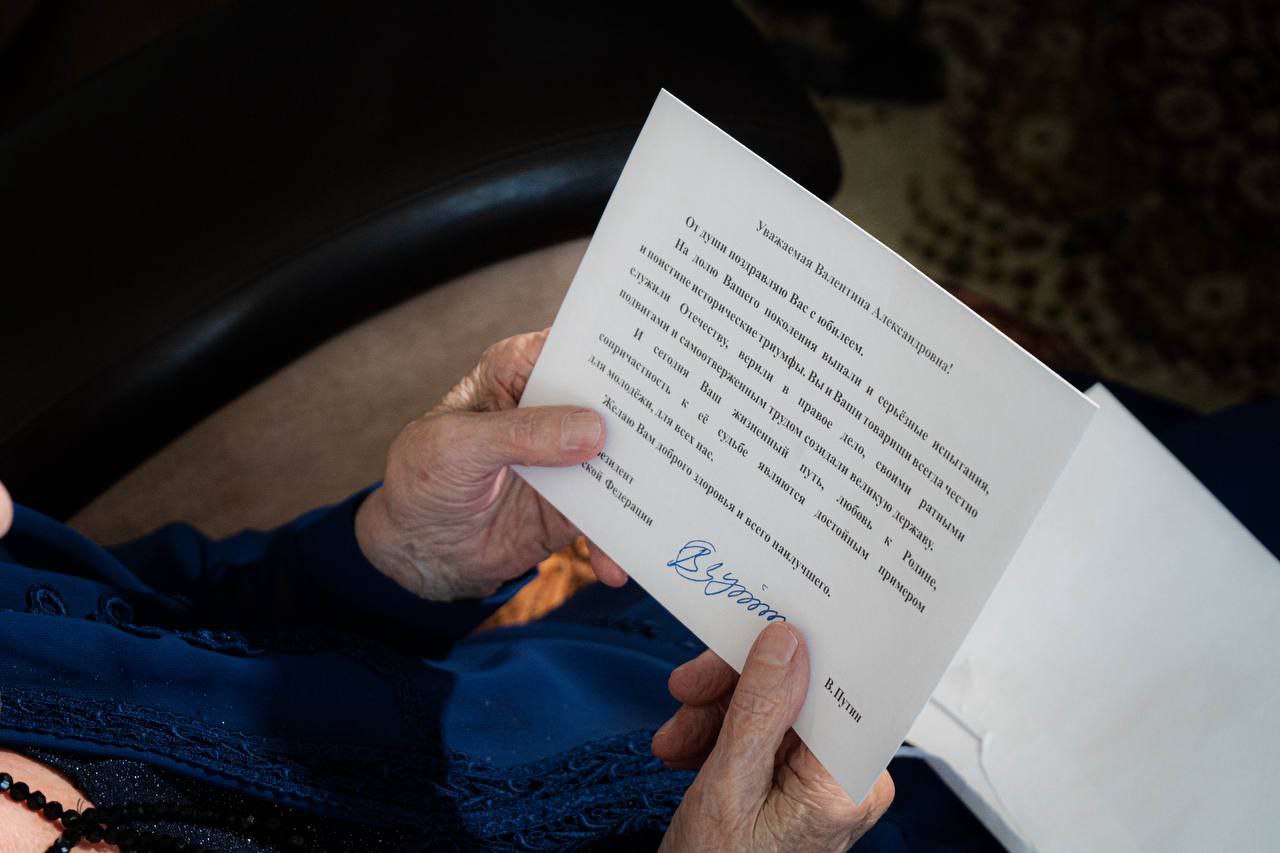 Уважаемая Валентина Александровна!
От души поздравляю Вас с юбилеем.
На долю Вашего поколения выпали и серьёзные испытания,
и поистине исторические триумфы. Вы и Ваши товарищи всегда честно
служили Отечеству, верили в правое дело, своими ратными
подвигами и самоотверженным трудом созидали великую державу.
И сегодня Ваш жизненный путь, любовь к Родине,
сопричастность к её судьбе являются достойным примером
для молодёжи, для всех нас.
Желаю Вам доброго здоровья и всего наилучшего.
резидент
ской Федерации
В. Путин